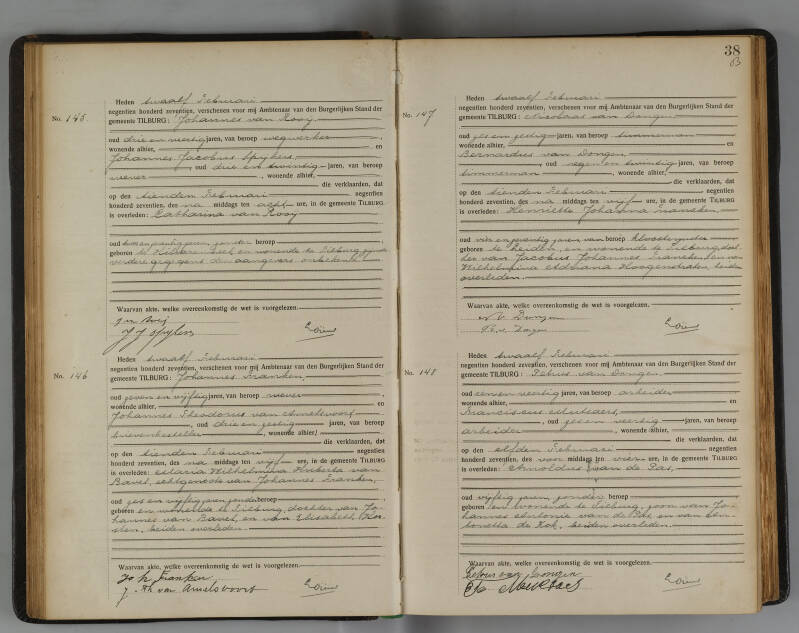 Heden twaalf Februari
No. 145. negentien honderd zeventien, verschenen voor mij Ambtenaar van den Burgerlijken Stand der
gemeente TILBURG: Johannes van Rooij
oud drie en veertig jaren, van beroep wegwerker,
wonende alhier, en
Johannes Jacobus Spijkers
, oud drie en twintig jaren, van beroep
wever , wonende alhier,
die verklaarden, dat
op den tienden Februari negentien
honderd zeventien, des na middags ten acht ure, in de gemeente TILBURG
is overleden: Catharina van Rooij
oud jaren, zonder beroep
geboren te Hilvarenbeek en wonende te Tilburg, zijnde
verdere gegevens den aangevers onbekend
Waarvan akte, welke overeenkomstig de wet is voorgelezen.
J v Rooij
J J Spijkers
Heden twaalf Februari
No. 146 negentien honderd zeventien, verschenen voor mij Ambtenaar van den Burgerlijken Stand der
gemeente TILBURG: Johannes Franken,
oud zeven en vijftig jaren, van beroep wever ,
wonende alhier, en
Johannes Theodorus van Amelsvoort
, oud drie en zestig jaren, van beroep
brievenbesteller , wonende alhier,
die verklaarden, dat
op den tienden Februari negentien
honderd zeventien, des na middags ten vijf ure, in de gemeente TILBURG
is overleden: Maria Wilhelmina Huberta van
Bavel, echtgenoote van Johannes Franken,
oud zes en vijftig jaren, zonder beroep
geboren en wonende te Tilburg, dochter van Jo-
hannes van Bavel en van Elisabeth
beiden overleden.
Waarvan akte, welke overeenkomstig de wet is voorgelezen.
Joh Franken
J. Th van Amelsvoort
38
63
Heden twaalf Februari
No. 147 negentien honderd zeventien, verschenen voor mij Ambtenaar van den Burgerlijken Stand der
gemeente TILBURG: Nicolaas van Dongen
oud zes en zestig jaren, van beroep timmerman ,
wonende alhier, en
Bernardus van Dongen
, oud negen en twintig jaren, van beroep
timmerman , wonende alhier,
die verklaarden, dat
op den tienden Februari negentien
honderd zeventien, des na middags ten vijf ure, in de gemeente TILBURG
is overleden: Henriette Johanna Francken
oud vier en zeventig jaren, van beroep kloosterzuster
geboren te Leiden, en wonende te Tilburg, doch-
ter van Jacobus Johannes Francken en van
Wilhelmina Adriana Hoogenstraten, beiden
overleden.
Waarvan akte, welke overeenkomstig de wet is voorgelezen.
N v. Dongen
B. v. Dongen
Heden twaalf Februari
No. 148 negentien honderd zeventien, verschenen voor mij Ambtenaar van den Burgerlijken Stand der
gemeente TILBURG: Petrus van Dongen
oud een en veertig jaren, van beroep arbeider ,
wonende alhier, en
Franciscus Mutsaers,
, oud zes en veertig jaren, van beroep
arbeider , wonende alhier,
die verklaarden, dat
op den elfden Februari negentien
honderd zeventien, des voor middags ten vier ure, in de gemeente TILBURG
is overleden: Arnoldus van de Pas,
oud vijftig jaren, zonder beroep
geboren en wonende te Tilburg, zoon van Jo-
hannes Antonie van de Pas en van An-
tonetta de Kok, beiden overleden.
Waarvan akte, welke overeenkomstig de wet is voorgelezen.
Petrus van Dongen
Mutsaers